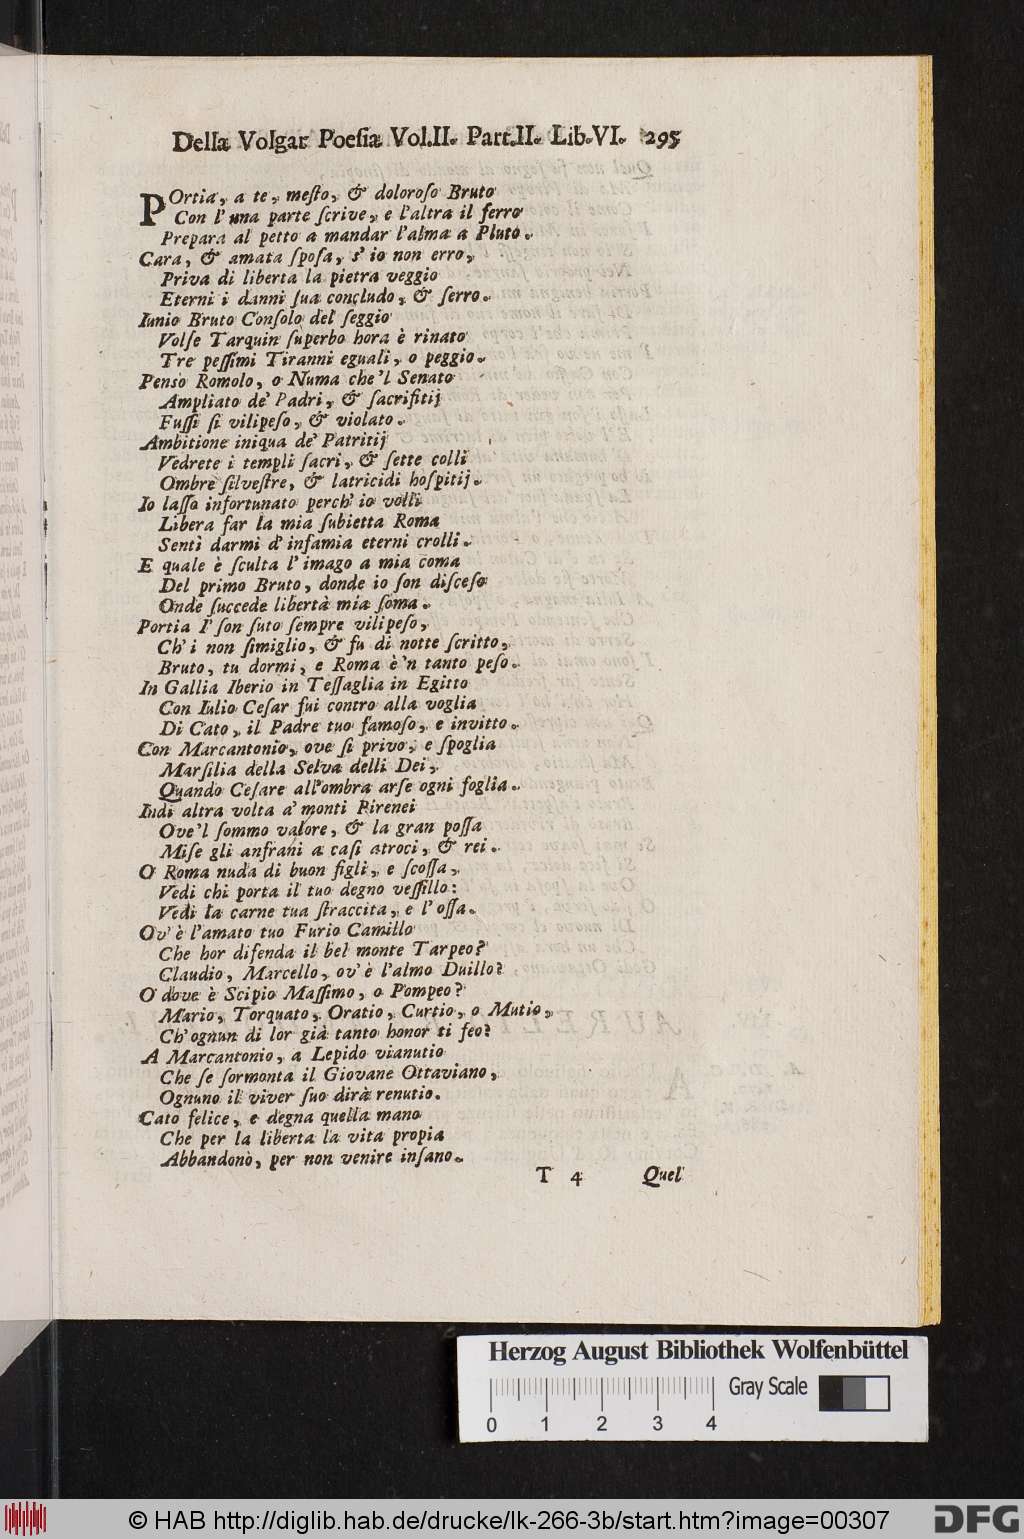 Della Volgar Poesia Vol.II. Part.II. Lib.VI. 295
POrtia, a te, mesto, & doloroso Bruto
Con l'una parte scrive, e l'altra il ferro
Prepara al petto a mandar l'alma a Pluto.
Cara, & amata sposa, s'io non erro,
Priva di liberta la pietra veggio
Eterni i danni sua concludo, & serro.
Iunio Bruto Consolo del seggio
Volse Tarquin superbo hora è rinato
Tre pessimi Tiranni eguali, o peggio.
Penso Romolo, o Numa che'l Senato
Ampliato de' Padri, & sacrifitij
Fussi si vilipeso, & violato.
Ambitione iniqua de' Patritij
Vedrete i templi sacri, & sette colli
Ombre silvestre, & latricidi hospitij.
Io lasso infortunato perch' io volli
Libera far la mia subietta Roma
Sentì darmi d'infamia eterni crolli.
E quale è sculta l'imago a mia coma
Del primo Bruto, donde io son disceso
Onde succede libertà mia soma.
Portia I' son suto sempre vilipeso,
Ch' i non simiglio, & fu di notte scritto,
Bruto, tu dormi, e Roma è 'n tanto peso.
In Gallia Iberio in Tessaglia in Egitto
Con Iulio Cesar fui contro alla voglia
Di Cato, il Padre tuo famoso, e invitto.
Con Marcantonio, ove si privo, e spoglia
Marsilia della Selva delli Dei,
Quando Cesare all'ombra arse ogni foglia.
Indi altra volta a' monti Pirenei
Ove'l sommo valore, & la gran possa
Mise gli anfrani a casi atroci, & rei.
O Roma nuda di buon figli, e scossa,
Vedi chi porta il tuo degno vessillo:
Vedi la carne tua straccita, e l'ossa.
Ov' è l'amato tuo Furio Camillo
Che hor difenda il bel monte Tarpeo?
Claudio, Marcello, ov' è l'almo Duillo?
O dove è Scipio Massimo, o Pompeo?
Mario, Torquato, Oratio, Curtio, o Mutio,
Ch'ognun di lor già tanto honor ti feo?
A Marcantonio, a Lepido vianutio
Che se sormonta il Giovane Ottaviano,
Ognuno il viver suo dirà renutio.
Cato felice, e degna quella mano
Che per la liberta la vita propia
Abbandonò, per non venire insano.
T 4 Quel
Herzog August Bibliothek Wolfenbüttel
Gray Scale
0 1 2 3 4
© HAB http://diglib.hab.de/drucke/lk-266-3b/start.htm?image=00307
DFG